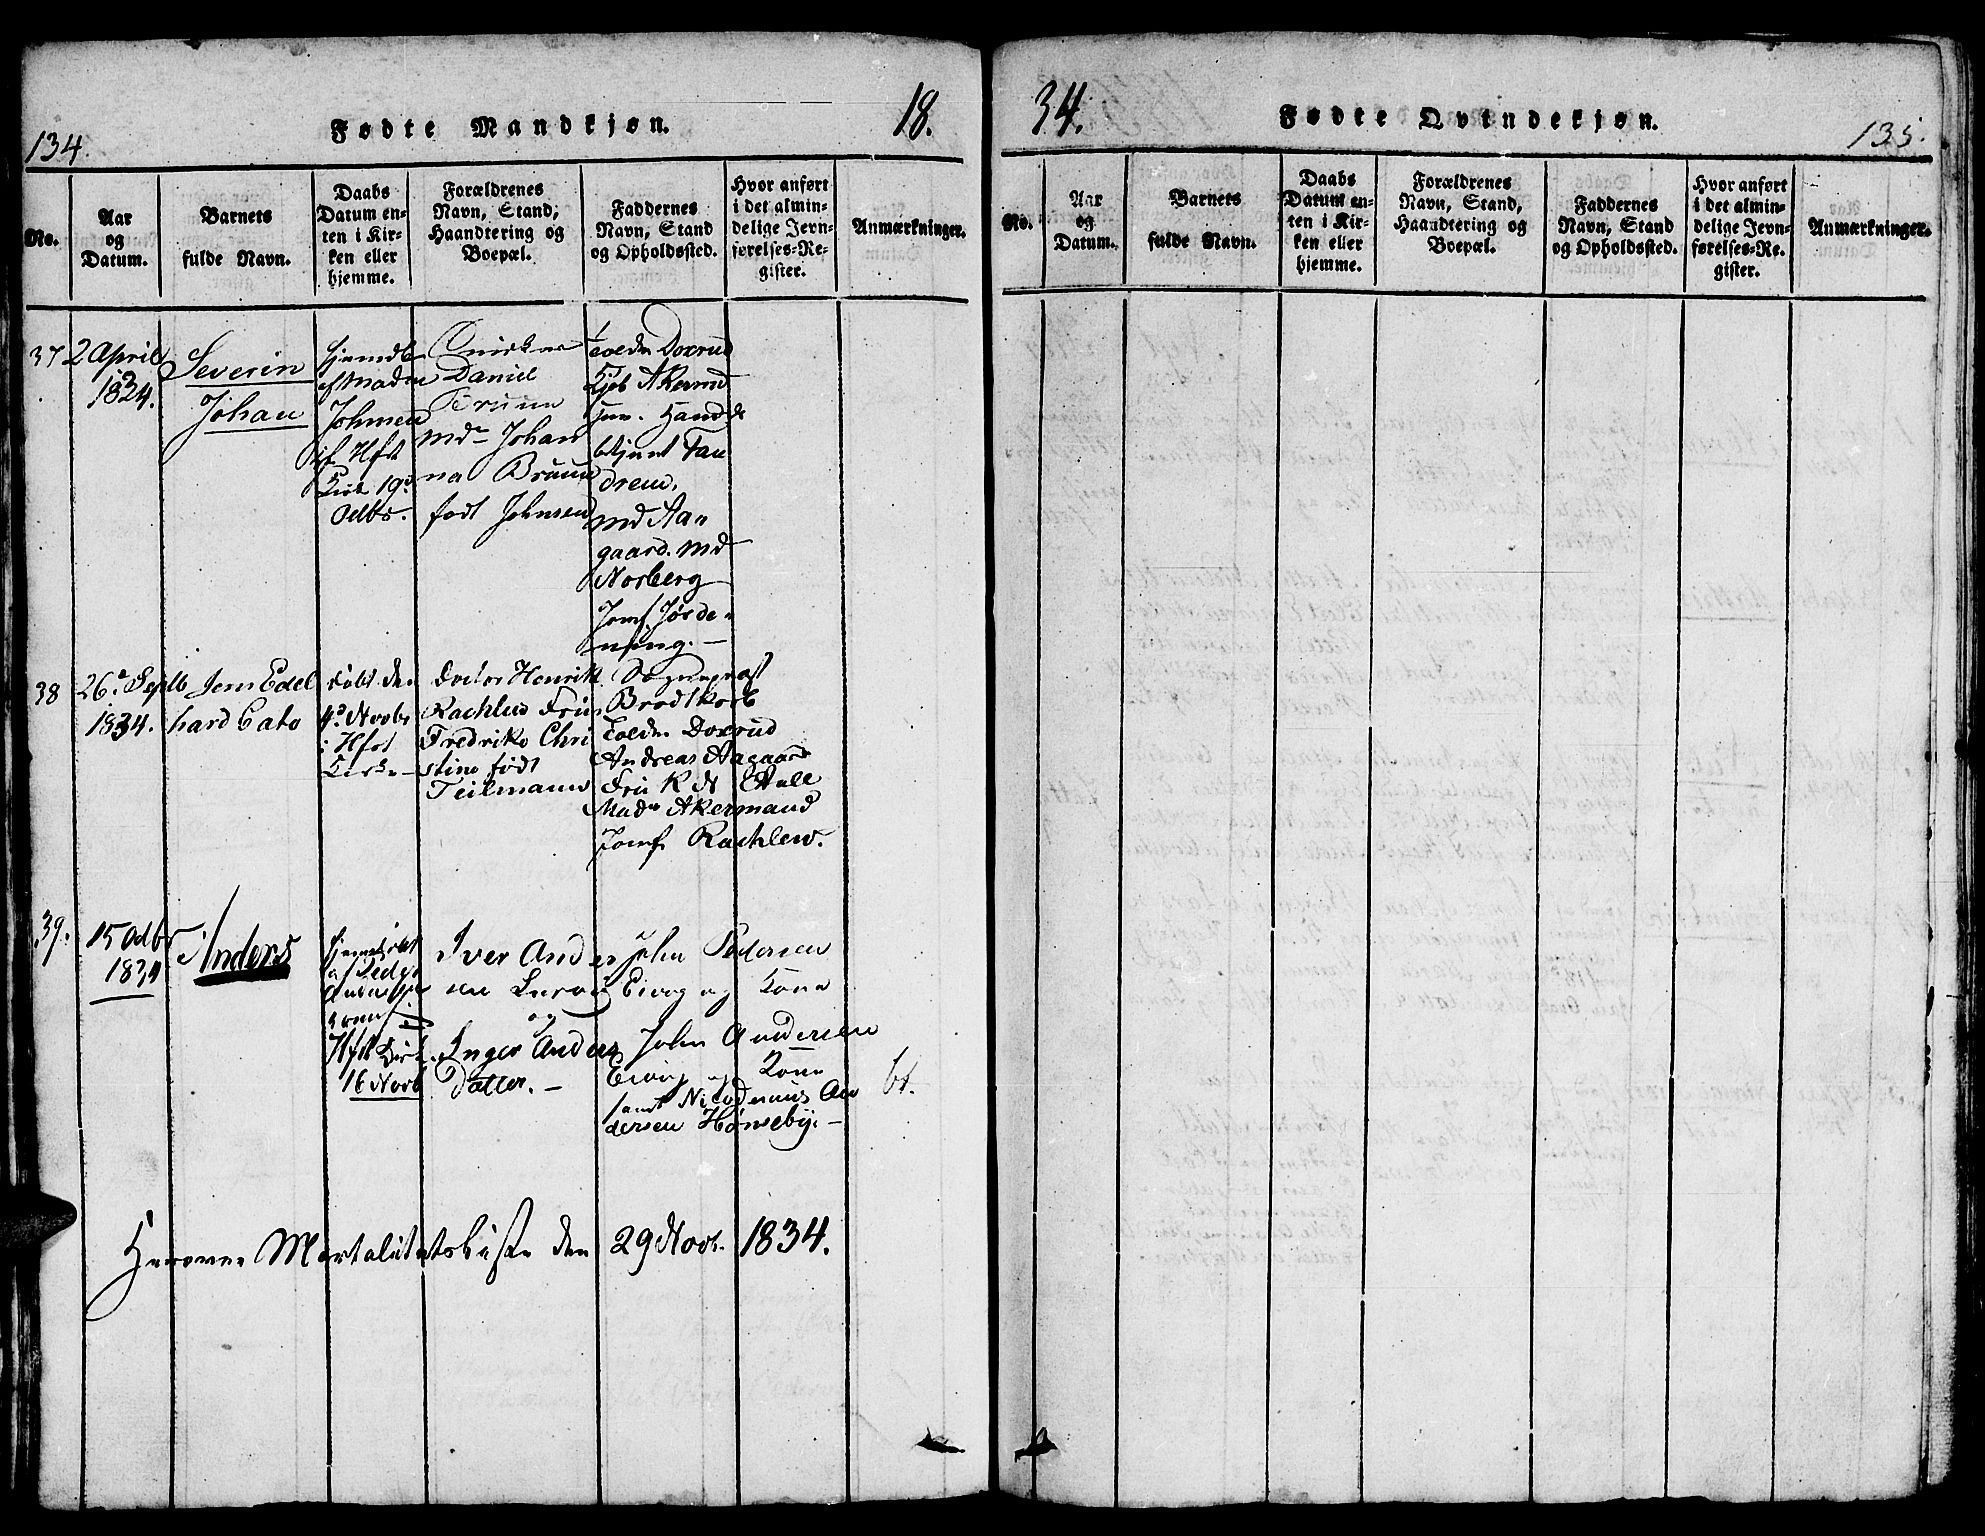 134.
Fødte Mandkjøn.
18.
No.
Aar
og
Datum.
Barnets
fulde Navn.
Daabs
Datum en-
ten i Kir-
ken eller
hjemme.
Forældrenes
Navn, Stand,
Haandtering og
Boepæl.
Faddernes
Navn, Stand
og Opholdssted.
Hvor anført
i det almin-
delige Jevn-
førelses-Re-
gister.
Anmærkninger.
37
2 April
1834.
Severin
Johan
hjemdbt
af Madm
Johnsen
i Hfst
Kirk 19d
Octbr.
Daniel
Bruun
Mdm Johan
na Bruun
født Johnsen
Tolder Doxrud
Kjøb Akerm
jun. Handels
btjent Tan
drem.
Md Aa
gaard. Md
Norberg
Jomf. Jørde
ning. —
38
26d Septb
1834.
Jens Edel
hard Cato
døbt den
4d Novbr
i Hfst
Kirke
Doctor Henrik
Rachlew Fru
Fredrike Chri
stine født
Teilmann
Sognepræst
Brodtkorb
Tolder Doxrud
Andreas Aagaard
Fru K N
Madm Akermand
Jomf. Rachlew.
39.
15 Octbr
1834
Anders
hjemdøbt
af Peder
i
Hfst Kirk
16 Novb
Iver Ander
sen
og
Inger Anders
Datter. —
John Pedersen
Eivog og Kone
John Andersen
Eivog og Kone
samt Nicodemus An
dersen Hønseby. —
bt.
Herover Mortalitetsliste den 29 Novbr. 1834.
34.
Fødte Qvindekjøn.
135.
No.
Aar
og
Datum.
Barnets
fulde Navn.
Daabs
Datum en-
ten i Kir-
ken eller
hjemme.
Forældrenes
Navn, Stand,
Haandtering og
Boepæl.
Faddernes
Navn, Stand
og Opholdssted.
Hvor anført
i det almin-
delige Jevn-
førelses-Re-
gister.
Anmærkninger.